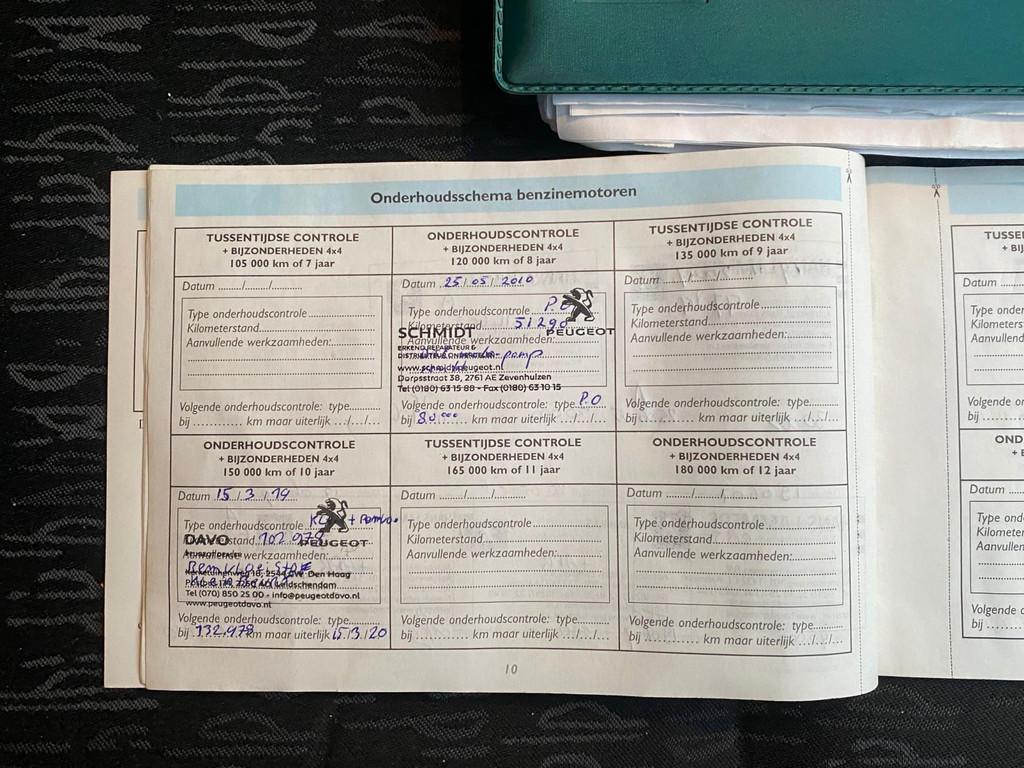 Onderhoudsschema benzinemotoren
TUSSENTIJDSE CONTROLE
+ BIJZONDERHEDEN 4x4
105 000 km of 7 jaar
Datum ......./......./...........
Type onderhoudscontrole
Kilometerstand
Aanvullende werkzaamheden:
Volgende onderhoudscontrole: type
bij ............ km maar uiterlijk .../.../...
ONDERHOUDSCONTROLE
+ BIJZONDERHEDEN 4x4
120 000 km of 8 jaar
Datum 25/05/2010
Type onderhoudscontrole
Kilometerstand 51290
SCHMIDT
PEUGEOT
Aanvullende werkzaamheden:
ERKEND REPARATEUR &
pomp
www.schmidtpeugeot.nl
Dorpsstraat 38, 2761 AE Zevenhuizen
Tel (0180) 63 15 88 - Fax (0180) 63 10 15
Volgende onderhoudscontrole: type P.O
bij 80.000 km maar uiterlijk .../.../...
TUSSENTIJDSE CONTROLE
+ BIJZONDERHEDEN 4x4
135 000 km of 9 jaar
Datum ......./......./...........
Type onderhoudscontrole
Kilometerstand
Aanvullende werkzaamheden:
Volgende onderhoudscontrole: type
bij ............ km maar uiterlijk .../.../...
ONDERHOUDSCONTROLE
+ BIJZONDERHEDEN 4x4
150 000 km of 10 jaar
Datum 15/3/19
Type onderhoudscontrole
DAVO
PEUGEOT
102.978
werkzaamheden:
Den Haag
Leidschendam
Tel (070) 850 25 00 - info@peugeotdavo.nl
www.peugeotdavo.nl
Volgende onderhoudscontrole: type
bij 132.978 km maar uiterlijk 15/3/20
TUSSENTIJDSE CONTROLE
+ BIJZONDERHEDEN 4x4
165 000 km of 11 jaar
Datum ......./......./...........
Type onderhoudscontrole
Kilometerstand
Aanvullende werkzaamheden:
Volgende onderhoudscontrole: type
bij ............ km maar uiterlijk .../.../...
ONDERHOUDSCONTROLE
+ BIJZONDERHEDEN 4x4
180 000 km of 12 jaar
Datum ......./......./...........
Type onderhoudscontrole
Kilometerstand
Aanvullende werkzaamheden:
Volgende onderhoudscontrole: type
bij ............ km maar uiterlijk .../.../...
10
Datum
Type
Volgende
bij
Datum
Type
Volgende
bij